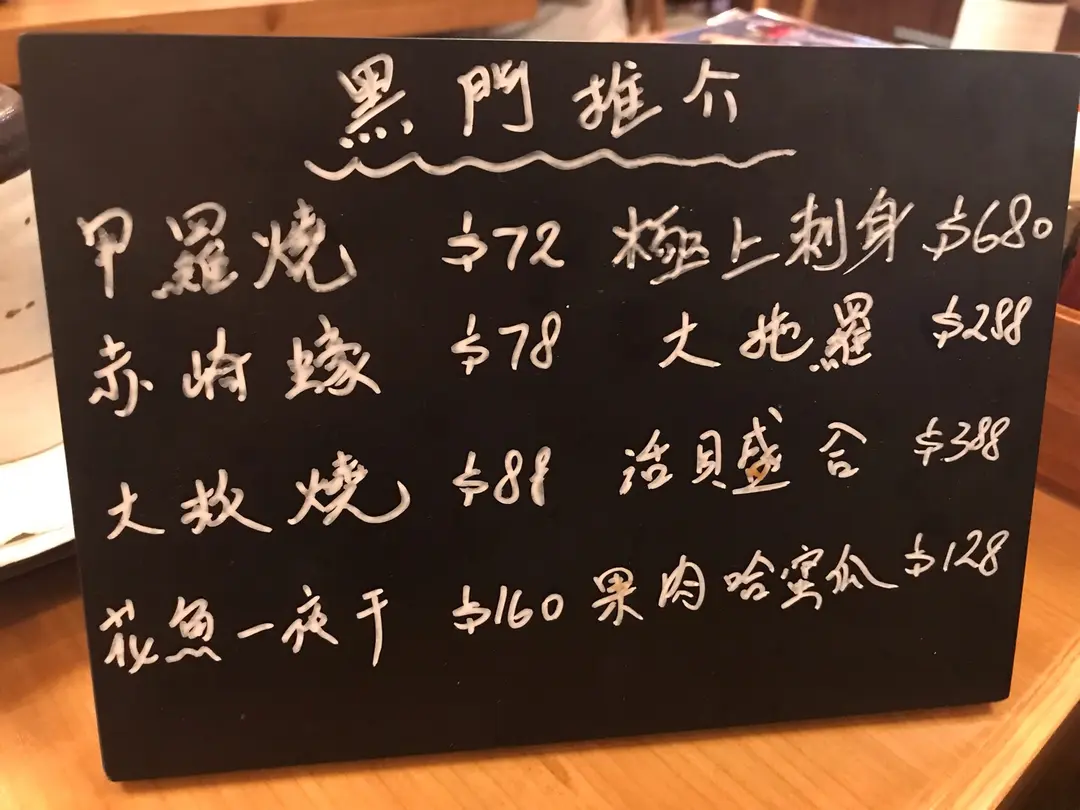 黑門推介
甲羅燒 $72 極上刺身 $680
赤崎蠔 $78 大拖羅 $288
大蚥燒 $88 活貝盛合 $388
花魚一夜干 $160 果肉哈蜜瓜 $128